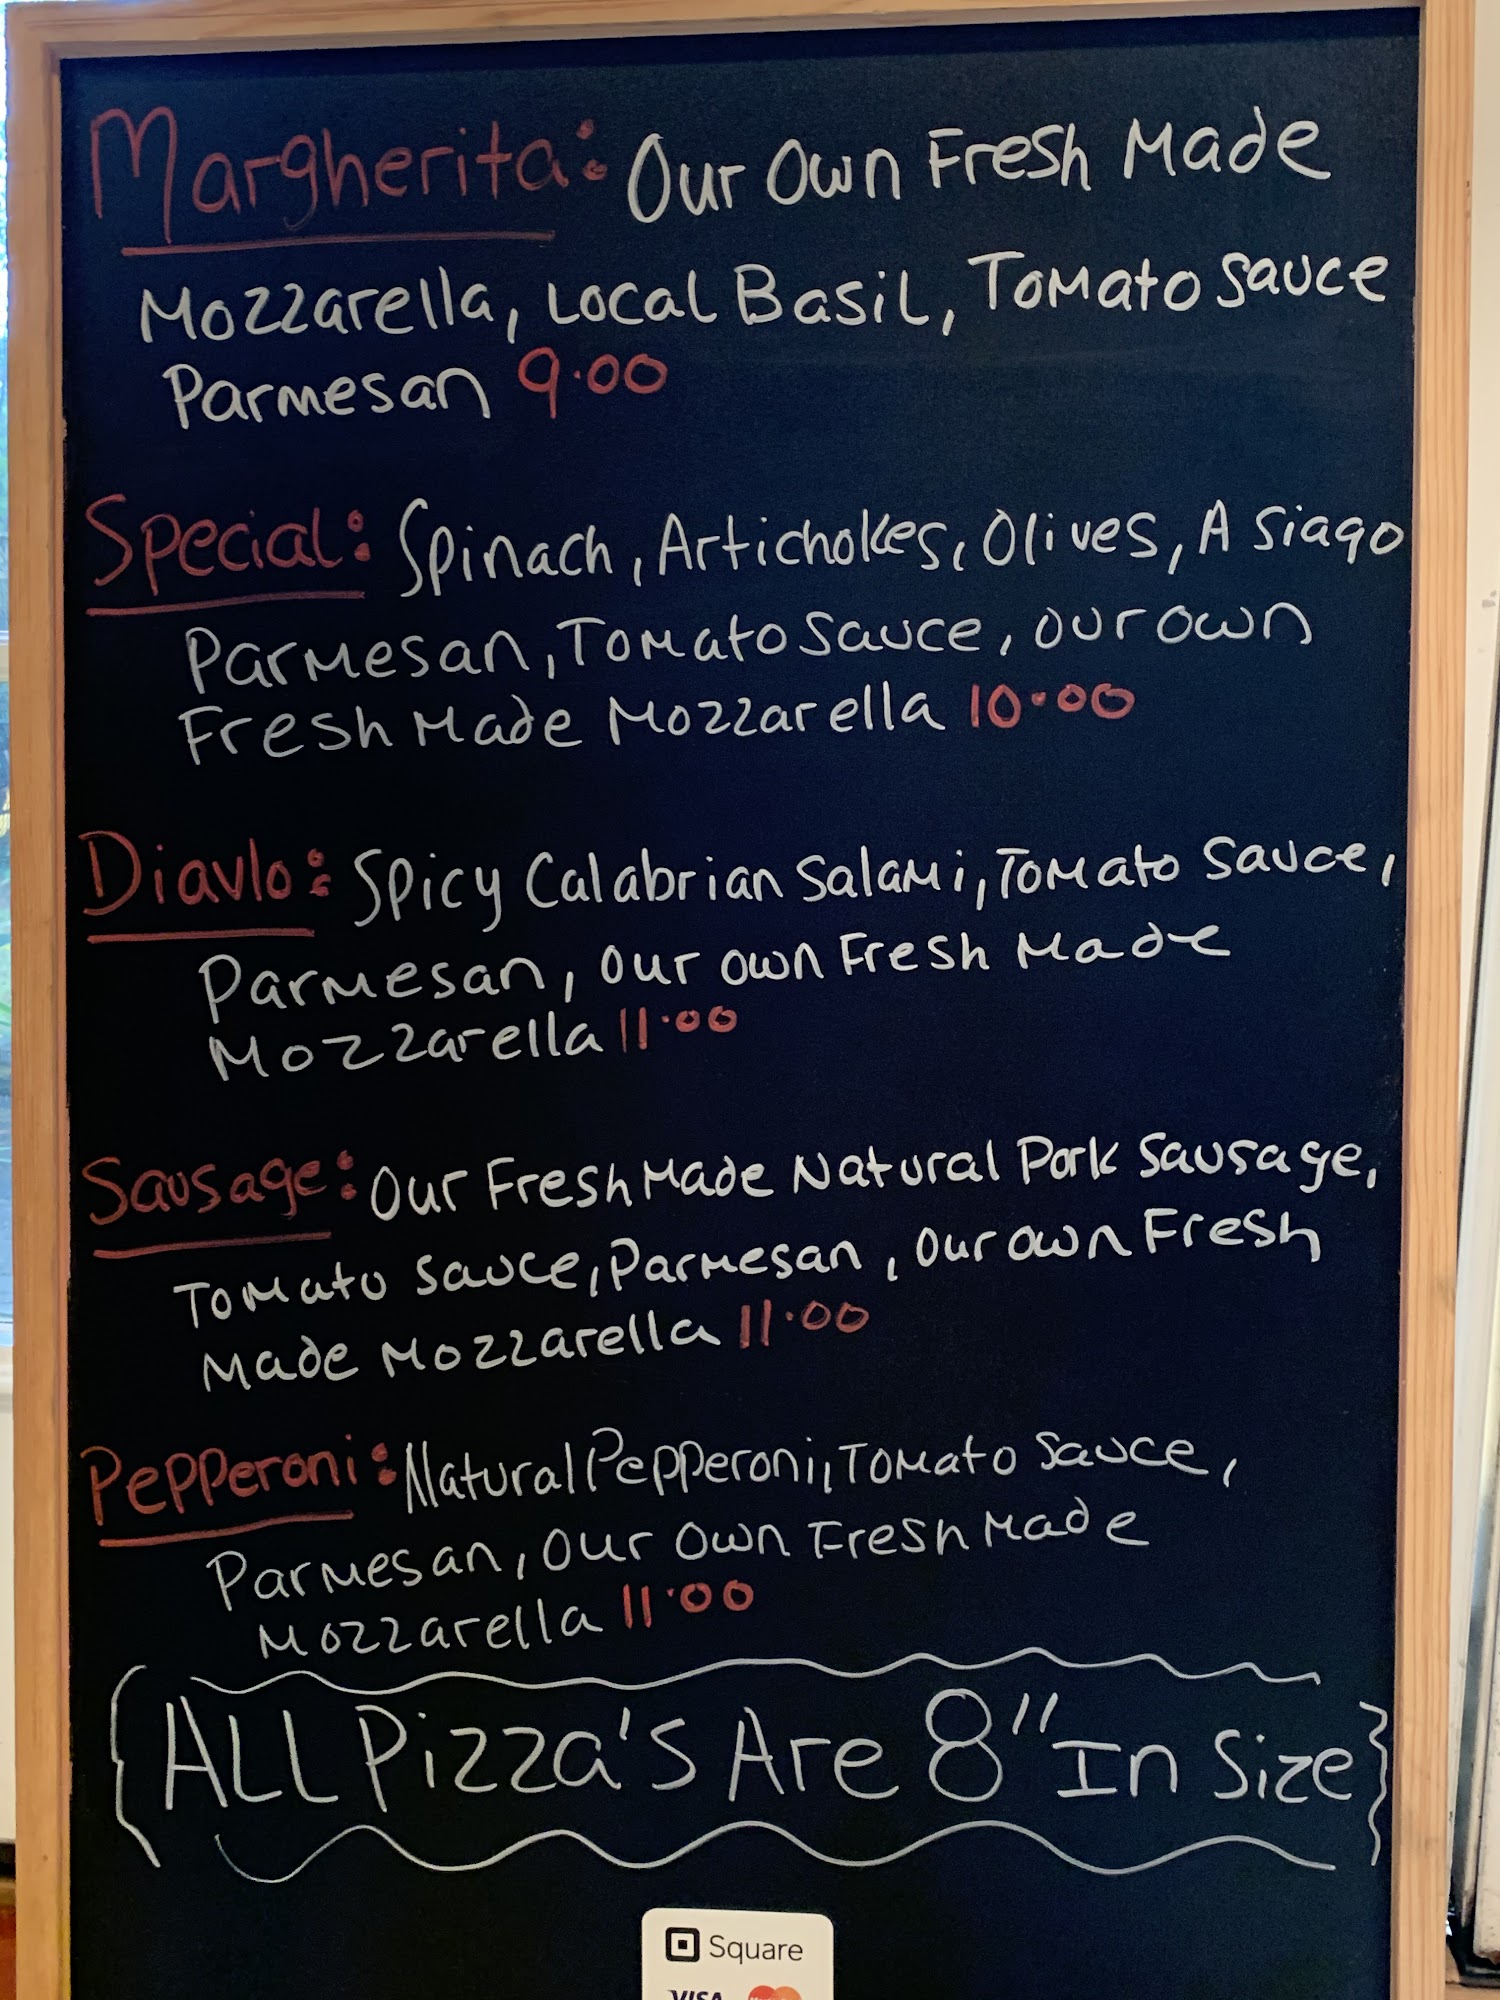 Margherita: Our Own Fresh Made
Mozzarella, Local Basil, Tomato Sauce
Parmesan 9.00
Special: Spinach, Artichokes, Olives, Asiago
Parmesan, Tomato Sauce, Our Own
Fresh Made Mozzarella 10.00
Diavlo: Spicy Calabrian Salami, Tomato Sauce,
Parmesan, Our Own Fresh Made
Mozzarella 11.00
Sausage: Our Fresh Made Natural Pork Sausage,
Tomato Sauce, Parmesan, Our Own Fresh
Made Mozzarella 11.00
Pepperoni: Natural Pepperoni, Tomato Sauce,
Parmesan, Our Own Fresh Made
Mozzarella 11.00
ALL Pizza's Are 8" In Size
Square
VISA